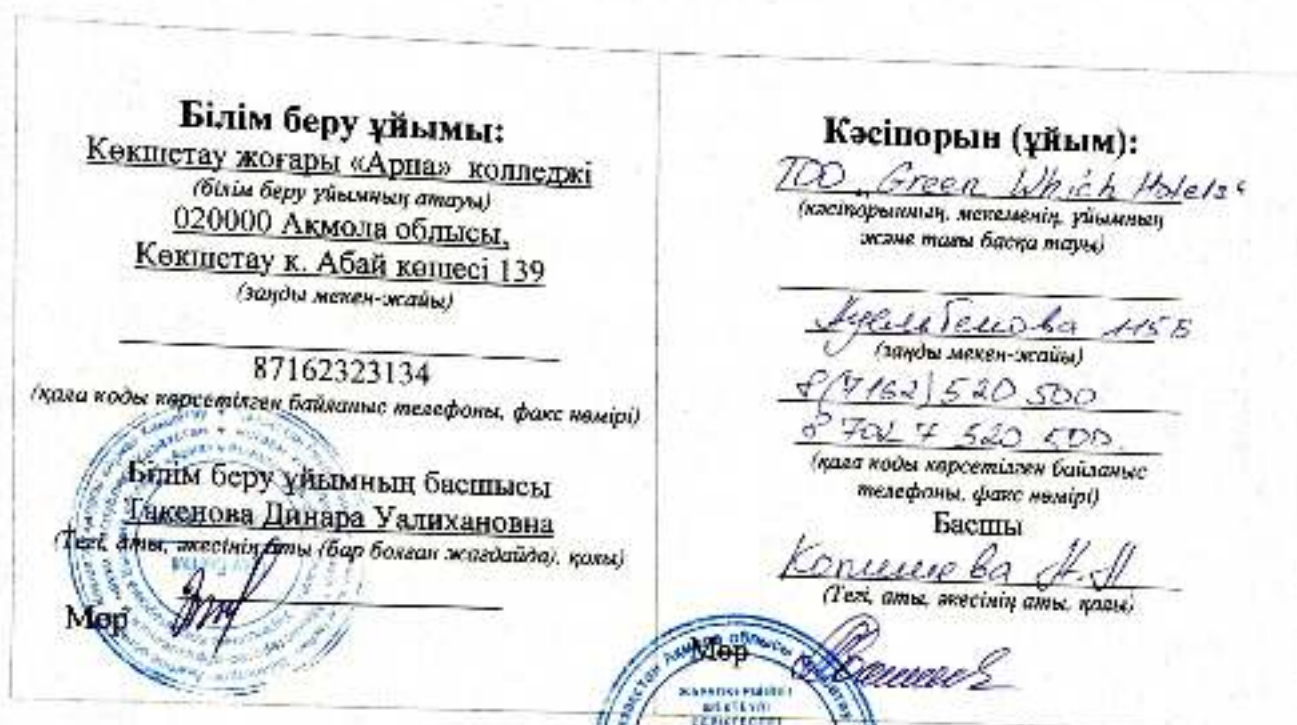 Білім беру ұйымы:
Көкшетау жоғары «Арпа» колледжі
(білім беру ұйымның атауы)
020000 Ақмола облысы,
Көкшетау к. Абай көшесі 139
(заңды мекен-жайы)
87162323134
(қала коды көрсетілген байланыс телефоны, факс нөмірі)
Білім беру ұйымның басшысы
Такенова Динара Уалихановна
(Тегі, аты, әкесінің аты (бар болған жағдайда), қолы)
Мөр
Кәсіпорын (ұйым):
ТОО "Green Which Hotels"
(кәсіпорынның, мекеменің, ұйымның
және тағы басқа тауы)
115 Б
(заңды мекен-жайы)
8(7162) 520 500
8 702 7 520 500.
(қала коды көрсетілген байланыс
телефоны, факс нөмірі)
Басшы
(Тегі, аты, әкесінің аты, қолы)
Мөр
ЖАУАПКЕРШІЛІГІ
ШЕКТЕУЛІ